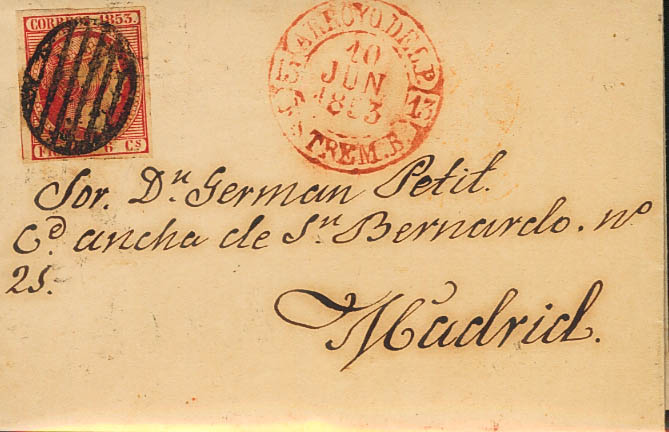 CORREOS 1853.
6 Cs
ARROYO DEL P.
10
JUN
1853
13
ESTREM. B
Sor. Dn German Petit.
Cd ancha de Sn Bernardo. no
25.
Madrid.